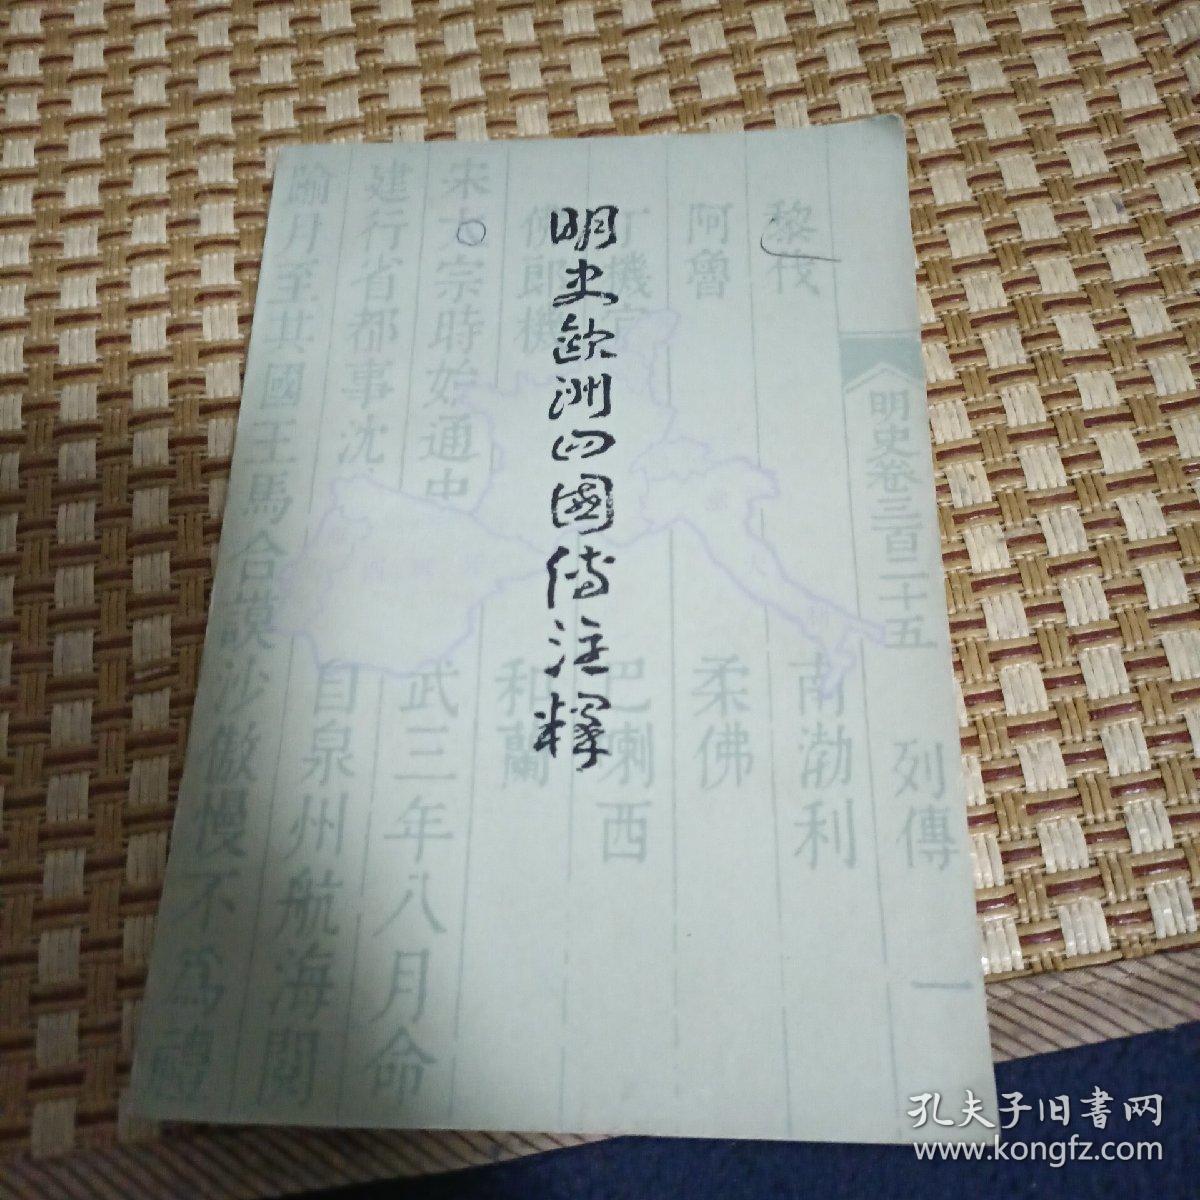 明史欧洲四國傳注释
明史卷三百二十五 列傳 一
黎伐 南渤利
阿魯 柔佛
丁機宜 巴喇西
佛郎機 和蘭
宋太宗時始通中 武三年八月命
建行省都事沈 自泉州航海閱
踰月至其國王馬合謨沙傲慢不爲禮
孔夫子旧書网
www.kongfz.com